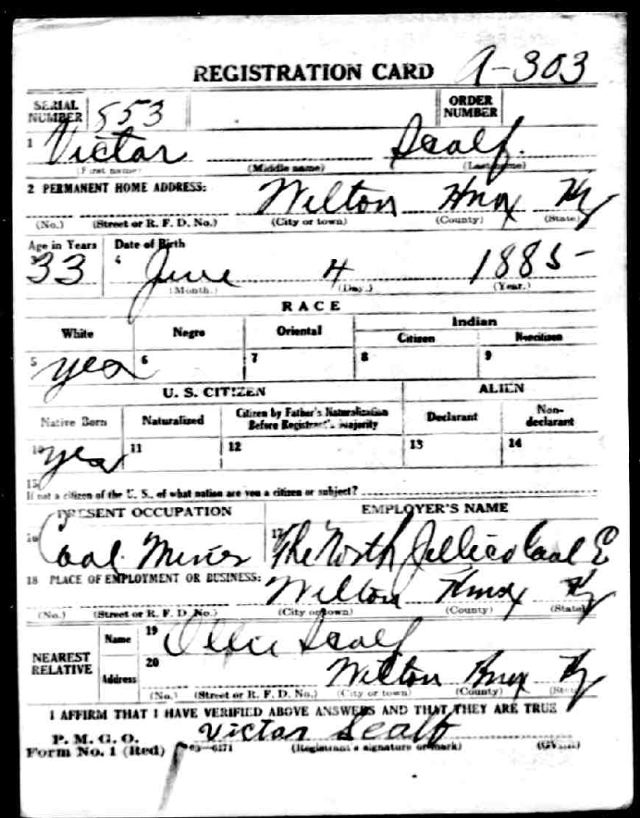 REGISTRATION CARD A-303
SERIAL NUMBER 553 ORDER NUMBER
1 Victor Scalf.
(First name) (Middle name) (Last name)
2 PERMANENT HOME ADDRESS: Wilton Knox Ky
(No.) (Street or R. F. D. No.) (City or town) (County) (State)
Age in Years Date of Birth
3 33 4 June 4 1885
(Month.) (Day.) (Year.)
RACE
White Negro Oriental Indian
Citizen Noncitizen
5 yes 6 7 8 9
U. S. CITIZEN ALIEN
Native Born Naturalized Citizen by Father's Naturalization Before Registrant's Majority Declarant Non-declarant
10 yes 11 12 13 14
15
If not a citizen of the U. S., of what nation are you a citizen or subject?
PRESENT OCCUPATION EMPLOYER'S NAME
16 Coal Miner 17 The North Jellico Coal
18 PLACE OF EMPLOYMENT OR BUSINESS: Wilton Knox Ky
(No.) (Street or R. F. D. No.) (City or town) (County) (State)
NEAREST RELATIVE Name 19 Ollie Scalf
Address 20 Wilton Knox Ky
(No.) (Street or R. F. D. No.) (City or town) (County) (State)
I AFFIRM THAT I HAVE VERIFIED ABOVE ANSWERS AND THAT THEY ARE TRUE
P. M. G. O.
Form No. 1 (Red) 03—6171 Victor Scalf
(Registrant's signature or mark) (OVER)